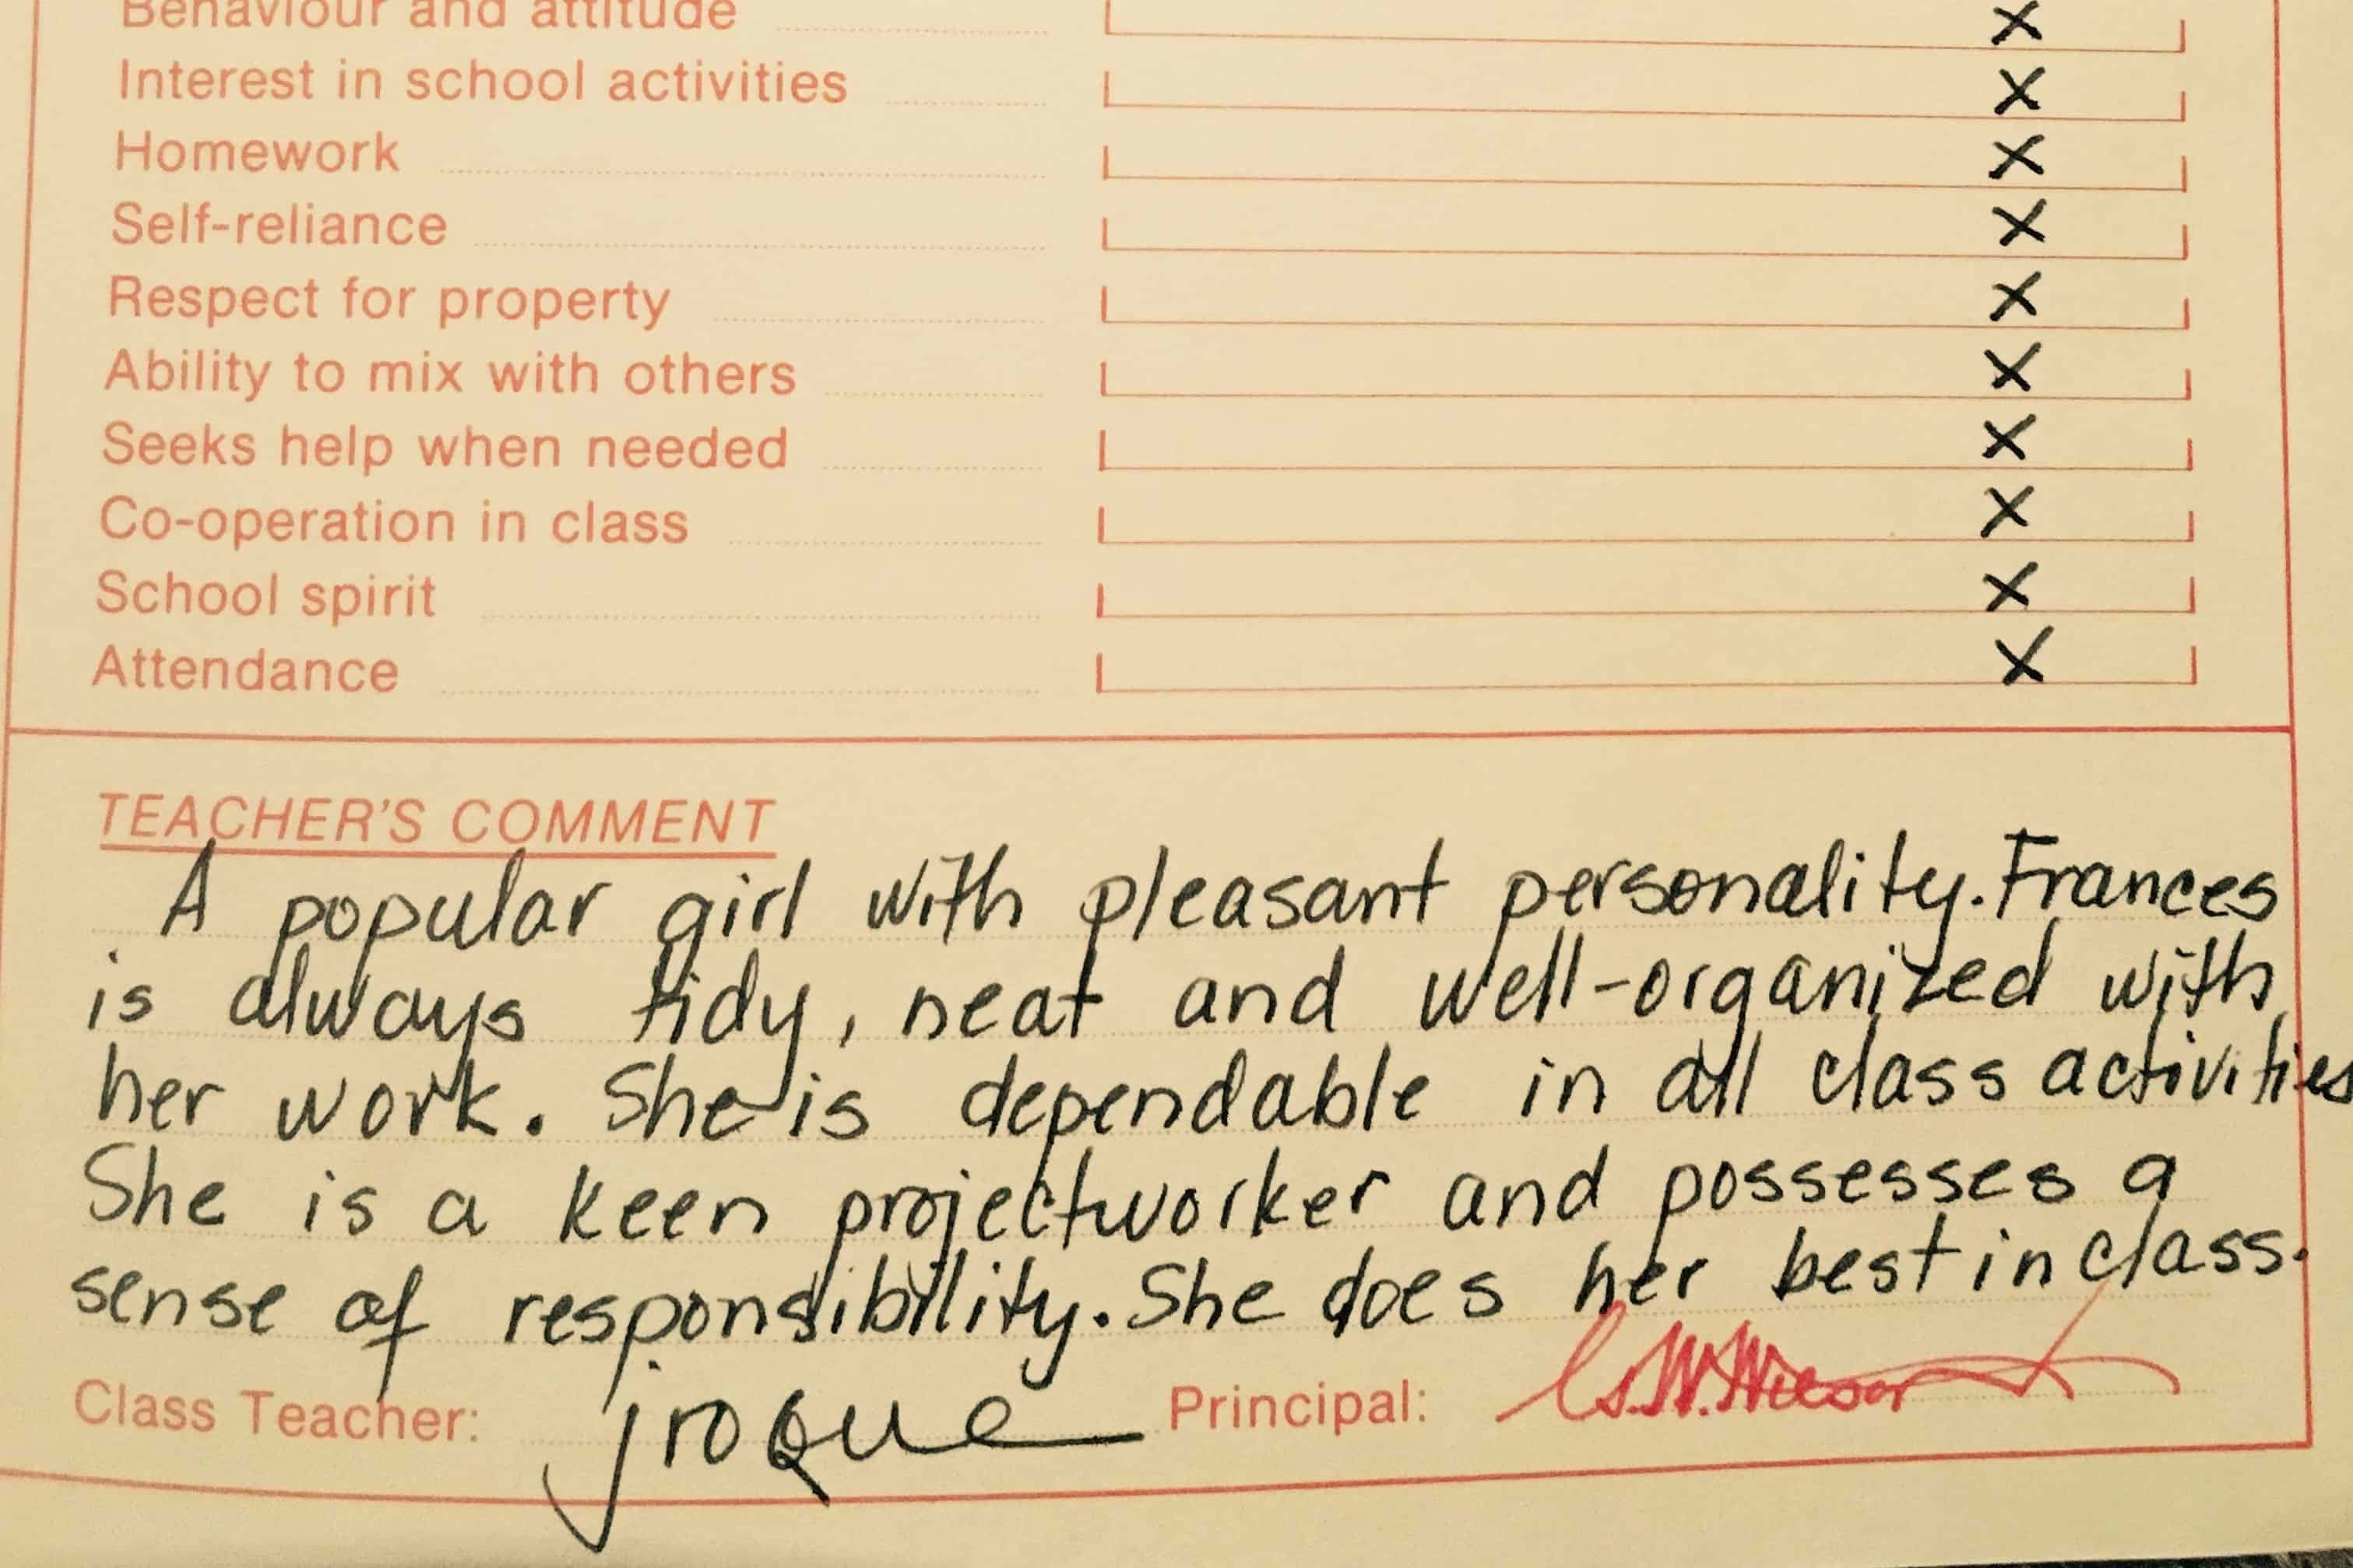 Behaviour and attitude X
Interest in school activities X
Homework X
Self-reliance X
Respect for property X
Ability to mix with others X
Seeks help when needed X
Co-operation in class X
School spirit X
Attendance X
TEACHER'S COMMENT
A popular girl with pleasant personality. Frances
is always tidy, neat and well-organized with
her work. She is dependable in all class activities
She is a keen projectworker and possesses a
sense of responsibility. She does her best in class.
Class Teacher: jroque Principal: